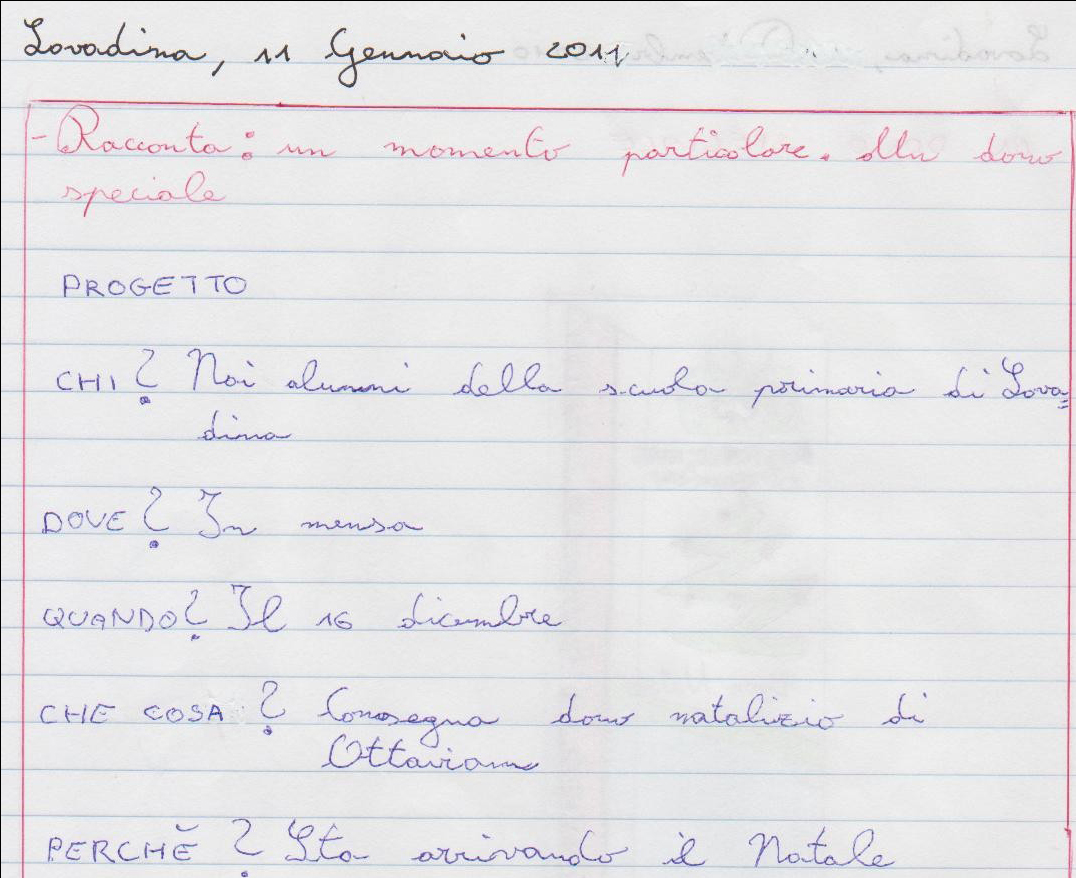 Lovadina, 11 Gennaio 2011
- Racconta: un momento particolare. Un dono
speciale
PROGETTO
CHI? Noi alunni della scuola primaria di Lova=
dina
DOVE? In mensa
QUANDO? Il 16 dicembre
CHE COSA? Consegna dono natalizio di
Ottaviano
PERCHĔ? Sta arrivando il Natale